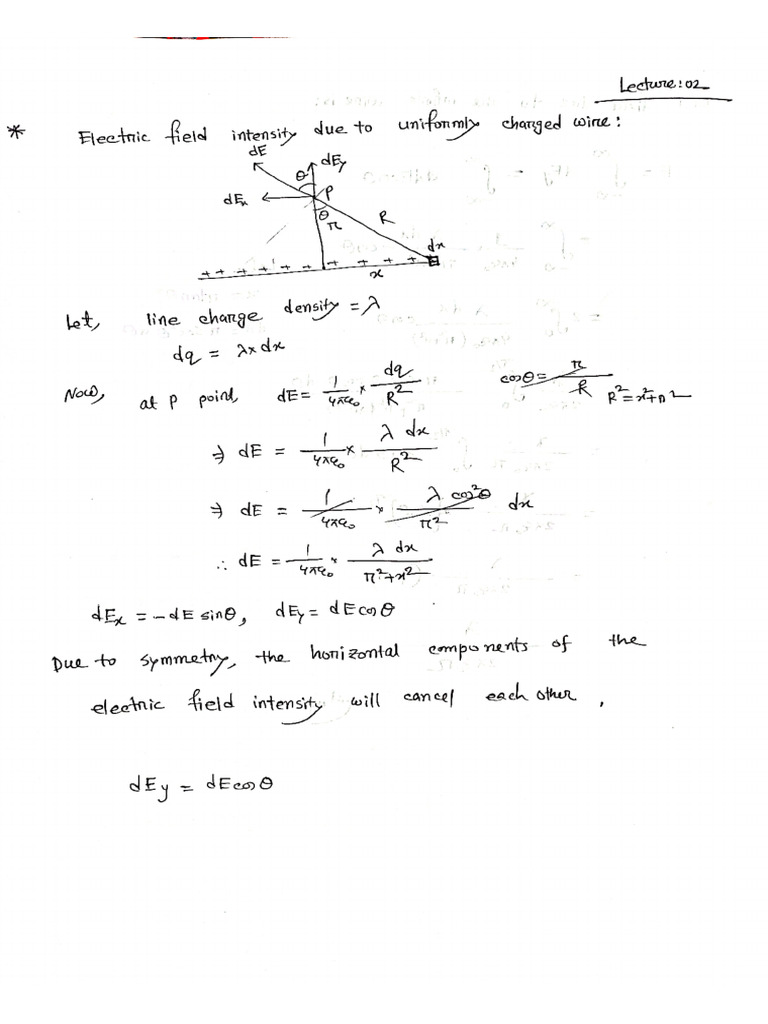 Lecture: 02
* Electric field intensity due to uniformly charged wire:
dE
dEy
θ
P
dEx
θ
r
R
dx
+ + + + + + + + + +
x
Let, line charge density = λ
dq = λ × dx
Now, at P point, dE = 1/4πε₀ × dq/R²
cosθ = r/R
R² = x² + r²
⇒ dE = 1/4πε₀ × λ dx/R²
⇒ dE = 1/4πε₀ × λ cos²θ/r² dx
∴ dE = 1/4πε₀ × λ dx/r²+x²
dEx = -dE sinθ, dEy = dE cosθ
Due to symmetry, the horizontal components of the
electric field intensity will cancel each other,
dEy = dE cosθ